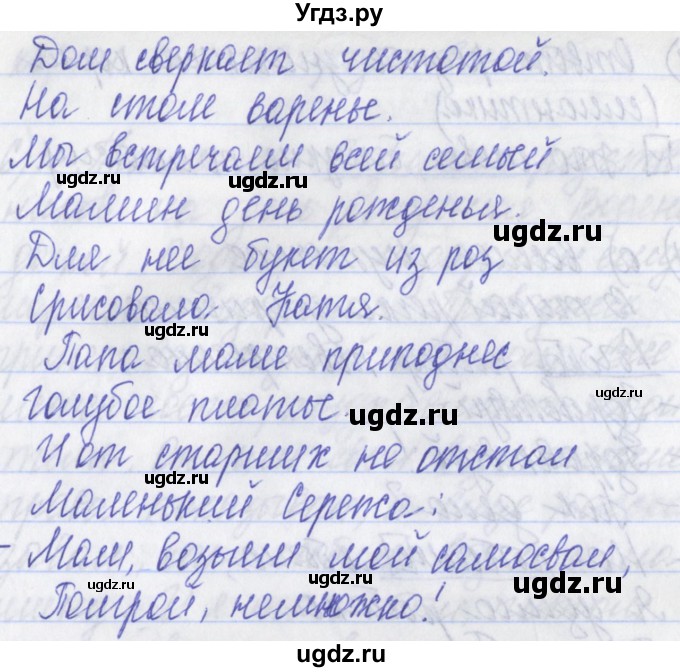 Угдз.ру
Дом сверкает чистотой.
На столе варенье.
Мы встречаем всей семьей
ugdz.ru ugdz.ru
Мамин день рожденья.
ugdz.ru
Для нее букет из роз
Срисовала Катя.
ugdz.ru ugdz.ru
Папа маме приподнес
ugdz.ru
Голубое платье.
ugdz.ru
И от старших не отстал
ugdz.ru
Маленький Сережа:
- Мам, возьми мой самосвал,
ugdz.ru ugdz.ru ugdz.ru
Поиграй, немножко!
ugdz.ru